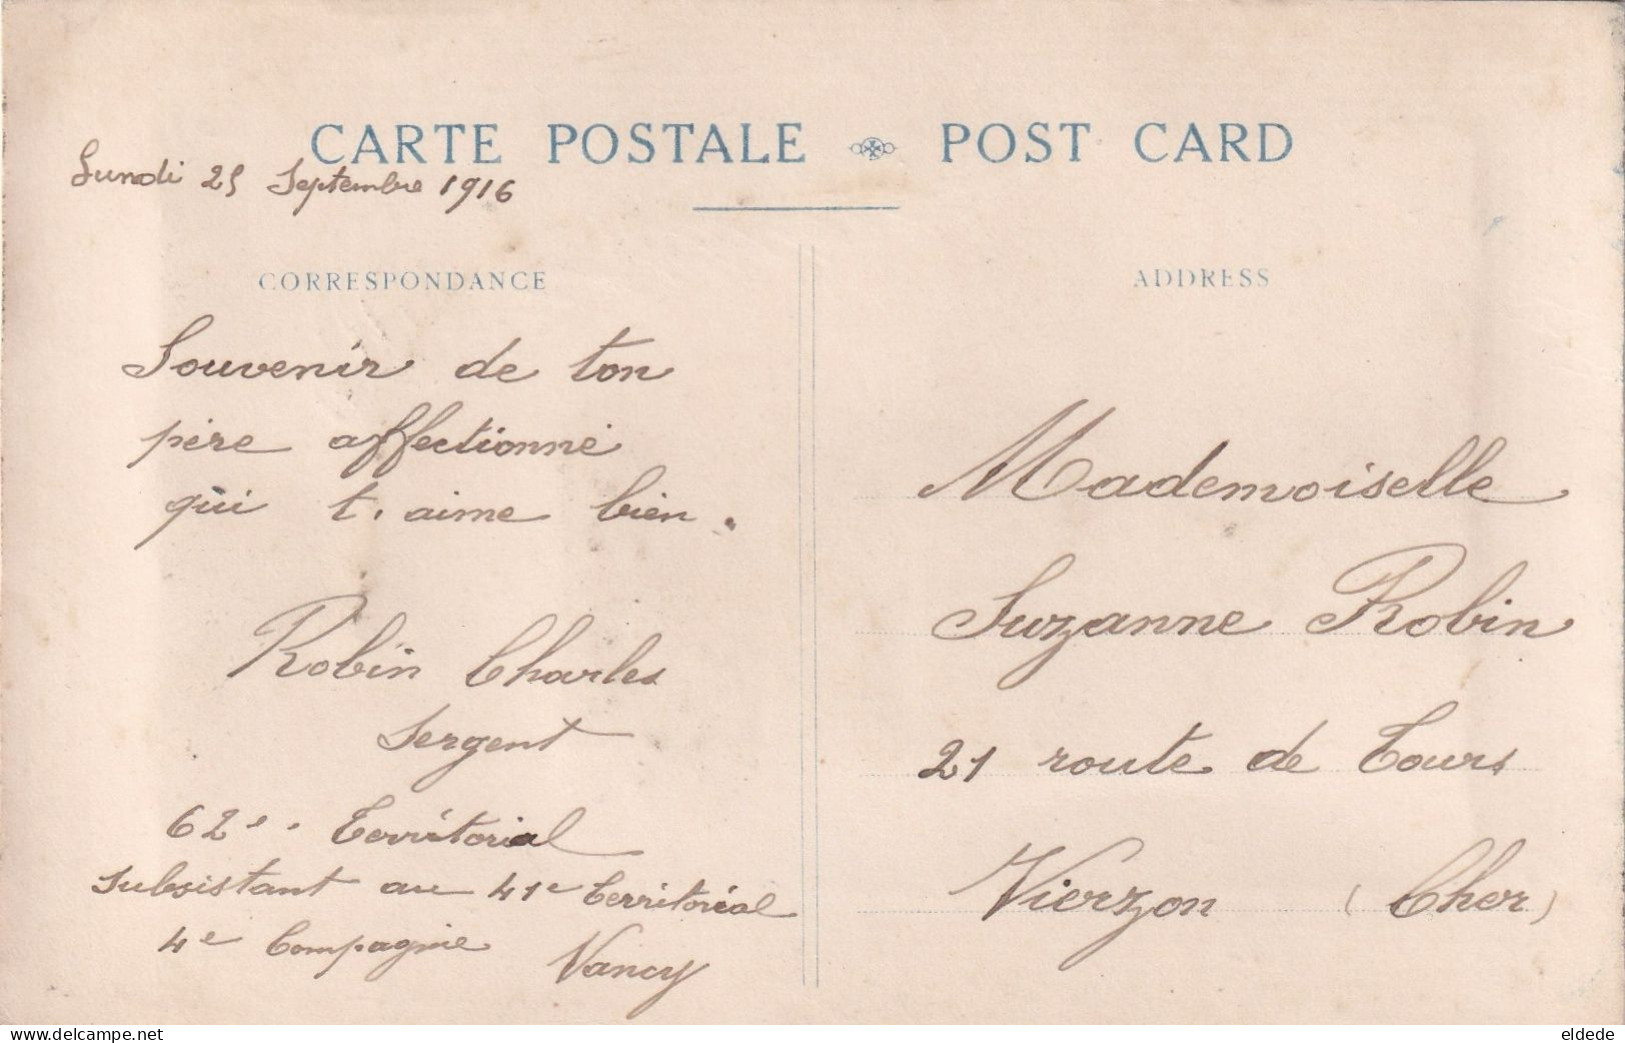 CARTE POSTALE POST CARD
Lundi 25 Septembre 1916
CORRESPONDANCE
Souvenir de ton
père affectionné
qui t'aime bien.
Robin Charles
Sergent
62e Territorial
subsistant au 41e Territorial
4e Compagnie Nancy
ADDRESS
Mademoiselle
Suzanne Robin
21 route de Tours
Vierzon (Cher)
www.delcampe.net
eldede